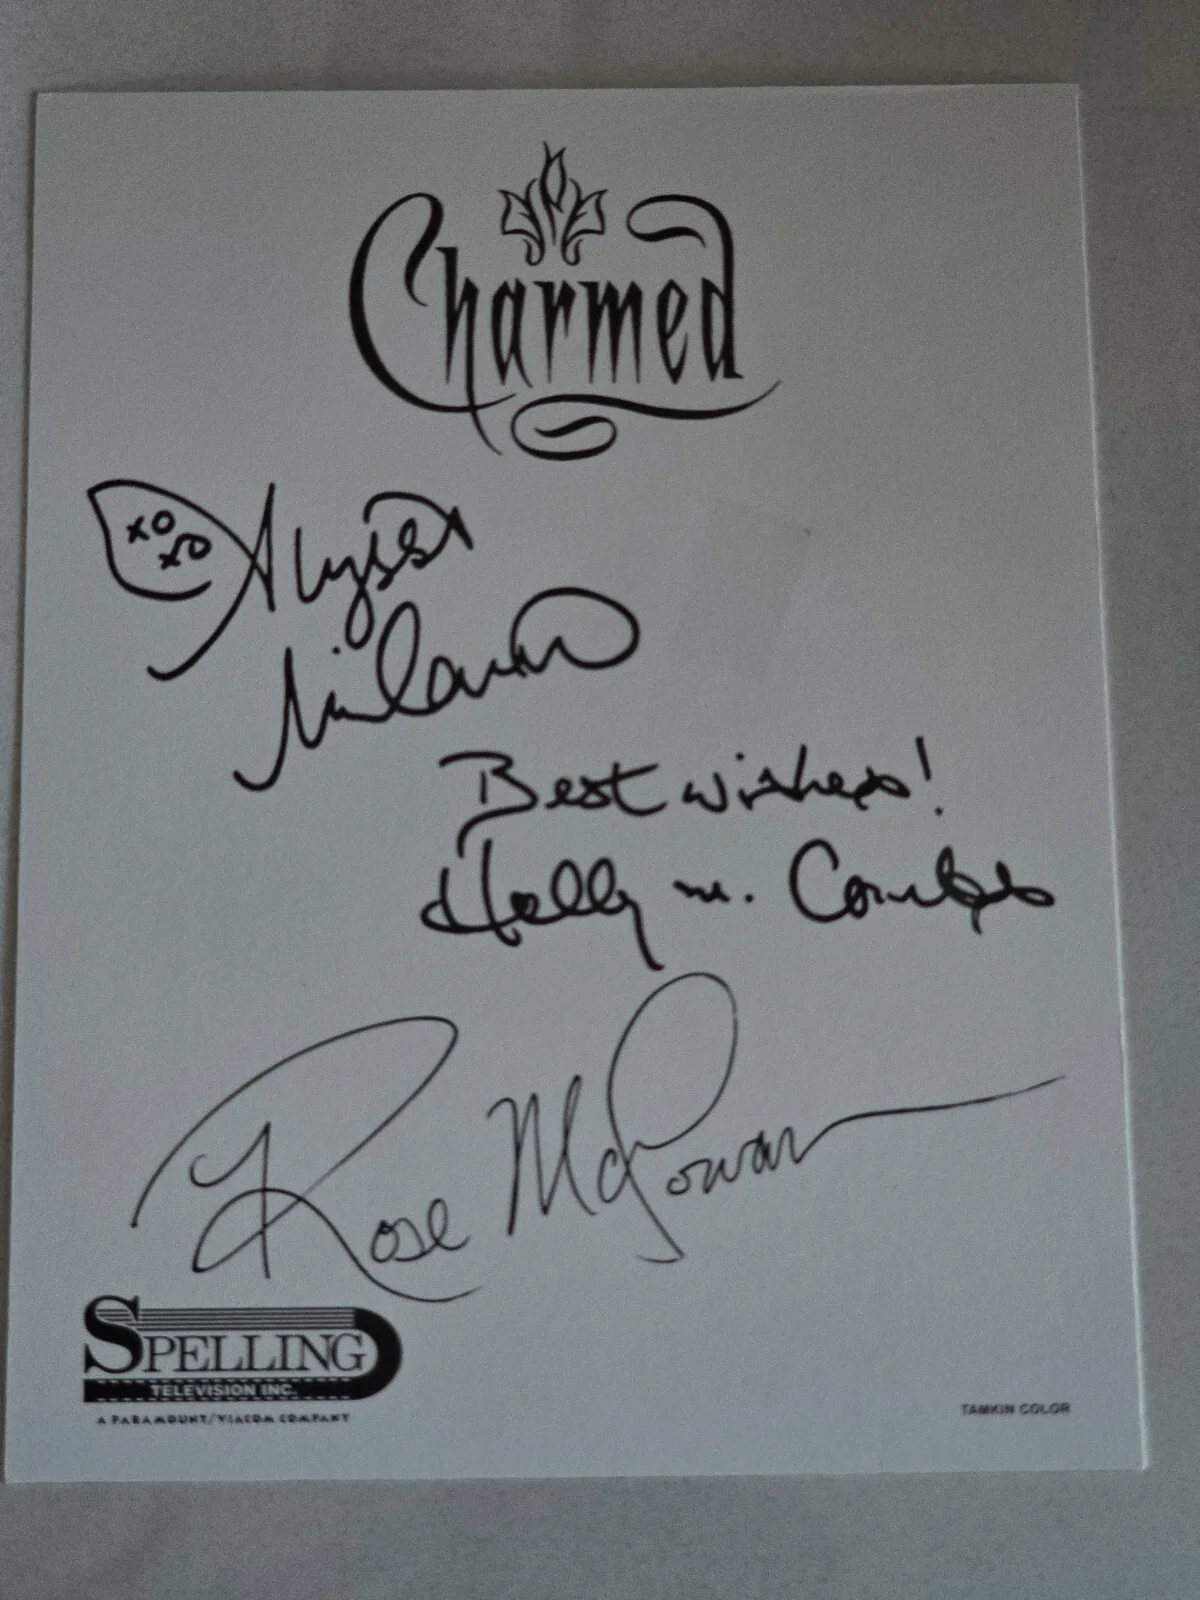 Charmed
xo
xo
Alyssa
Milano
Best wishes!
Holly M. Combs
Rose McGowan
SPELLING
TELEVISION INC.
A PARAMOUNT/VIACOM COMPANY
TAMKIN COLOR